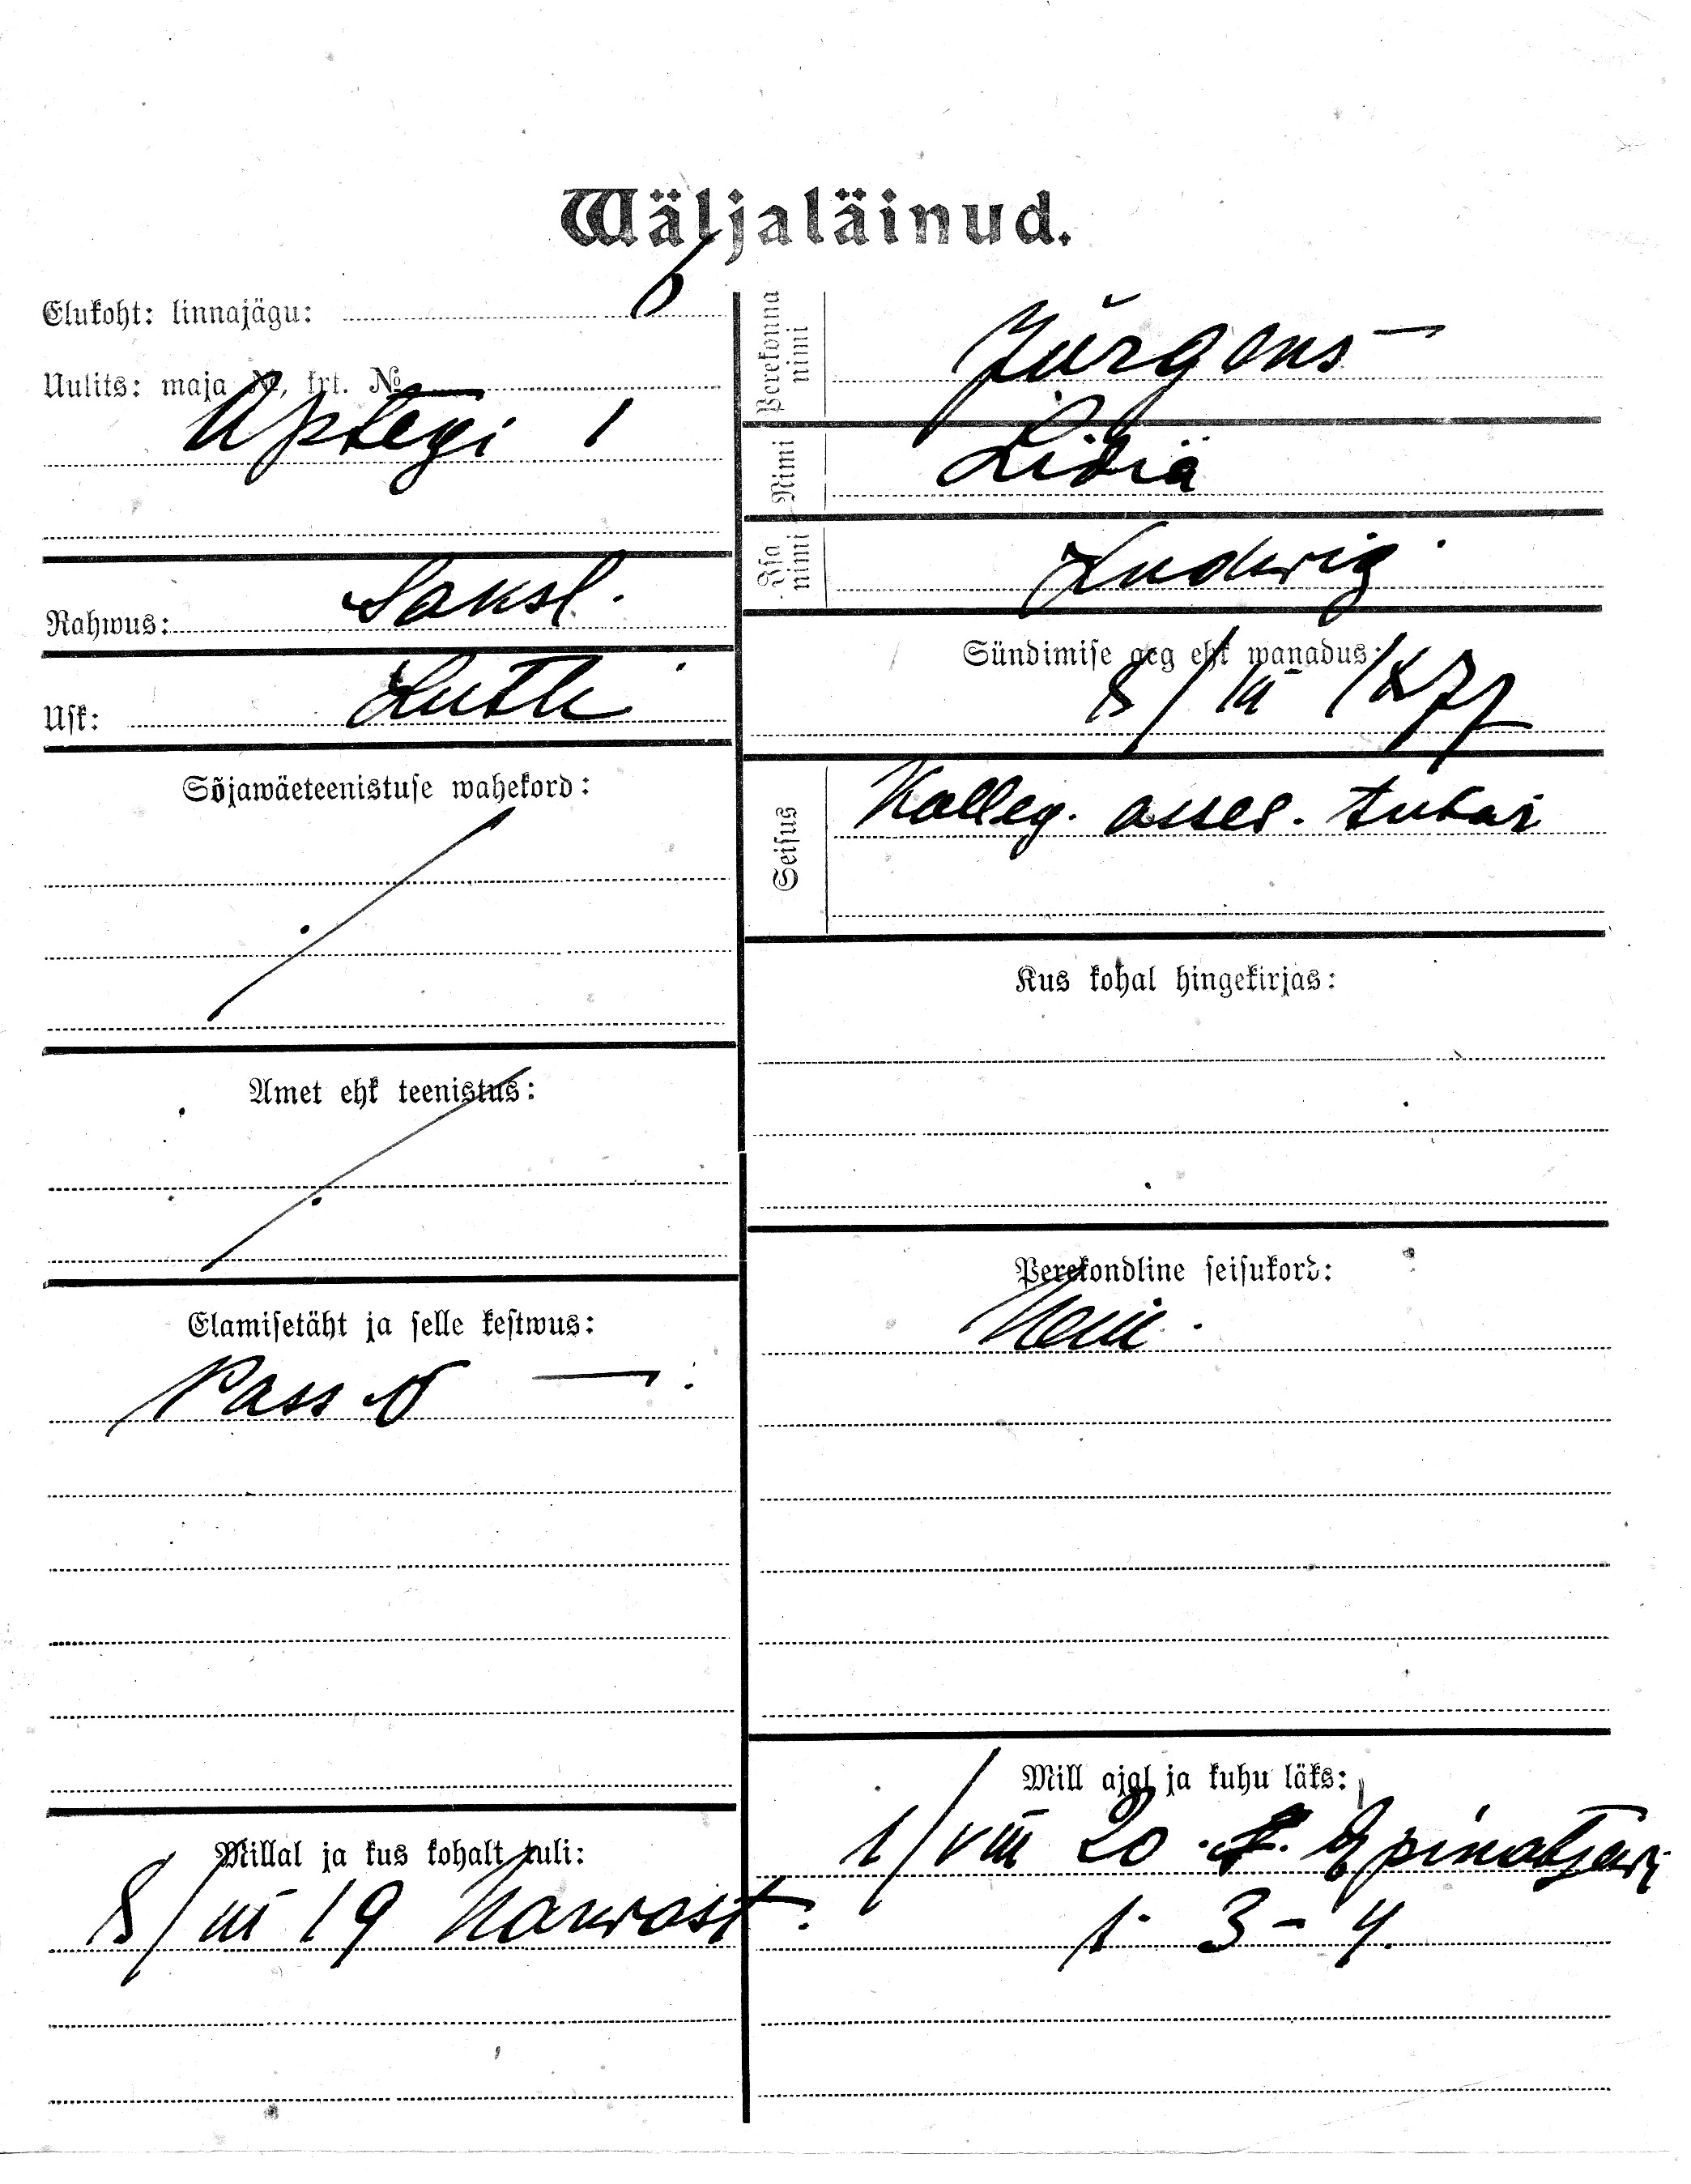 Wäljaläinud.
Elukoht: linnajägu: 6
Uulits: maja №, krt. №
Aptegi 1
Rahwus: Saksl.
Usk: Luth
Sõjawäeteenistuse wahekord:
Amet ehk teenistus:
Elamisetäht ja selle kestwus:
Pass №
Millal ja kus kohalt tuli:
8/III 19 Narwast.
Perekonna nimi Jürgens
Nimi Lidia
Isa nimi Ludwig
Sündimise aeg ehk wanadus:
8/III 1877
Seisus Kolleg. asses. tütar
Kus kohal hingekirjas:
Perekondline seisukord:
Neiu.
Mill ajal ja kuhu läks:
1/VIII 20
1. 3-4.